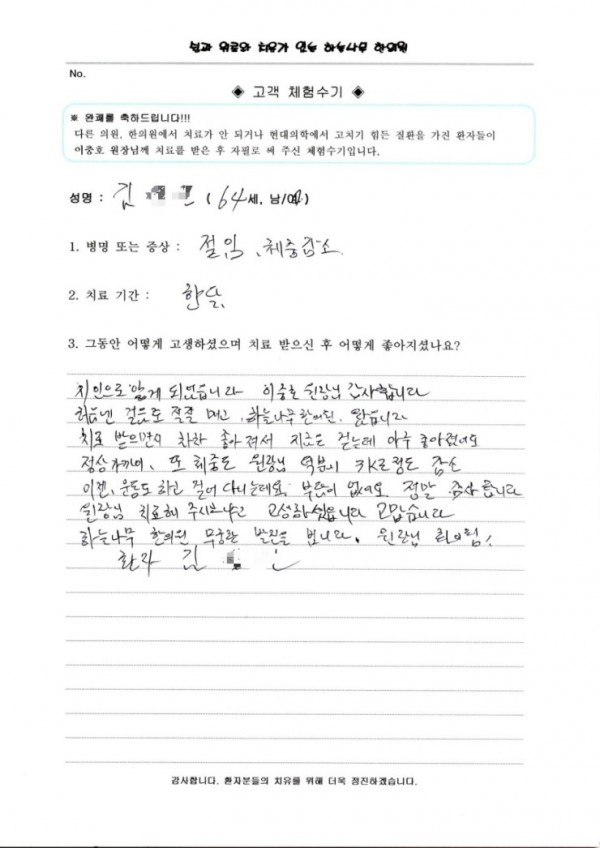 No.
◈ 고객 체험수기 ◈
※ 완쾌를 축하드립니다!!!
다른 의원, 한의원에서 치료가 안 되거나 현대의학에서 고치기 힘든 질환을 가진 환자들이
이중호 원장님께 치료를 받은 후 자필로 써 주신 체험수기입니다.
성명 : 김 (64세, 남/여)
1. 병명 또는 증상 : 절임, 체중감소
2. 치료 기간 : 한달
3. 그동안 어떻게 고생하셨으며 치료 받으신 후 어떻게 좋아지셨나요?
지인으로 알게 되었습니다 이중호 원장님 감사합니다
처음엔 걸음도 절절 매고, 하늘나무한의원, 왔습니다
치료 받으면서 차차 좋아져서 지금은 걷는데 아주 좋아졌어요
정상까지, 또 체중도 원장님 덕분에 3K정도 감소
이젠, 운동도 하고 걸어 다니는데요 부담이 없어요 정말 감사드립니다
원장님 치료해 주시느라고 고생하셨습니다 고맙습니다
하늘나무 한의원 무궁한 발전을 빕니다. 원장님
환자 김
감사합니다. 환자분들의 치유를 위해 더욱 정진하겠습니다.